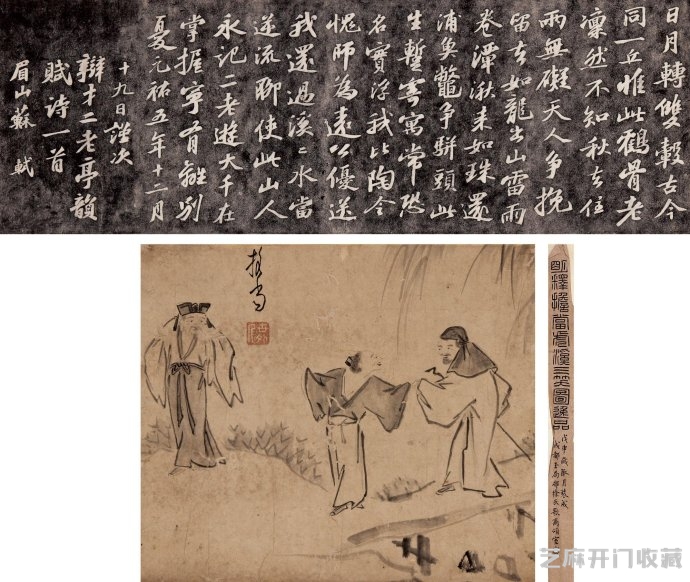 日月轉雙轂古今
同一丘惟此鶴骨老
凜然不知秋去住
兩無礙天人争挽
留去如龍出山雷雨
卷潭湫来如珠還
浦魚鼈争駢頭此
生暫寄寓常恐
名實浮我比陶令
愧師為遠公優送
我還過溪〻水當
逆流聊使此山人
永記二老遊大千在
掌握寧有離别
憂元祐五年十二月
十九日謹次
辯才二老亭韻
賦詩一首
眉山蘇軾
擔當
明釋擔當虎溪三笑圖逸品
芝麻开门收藏